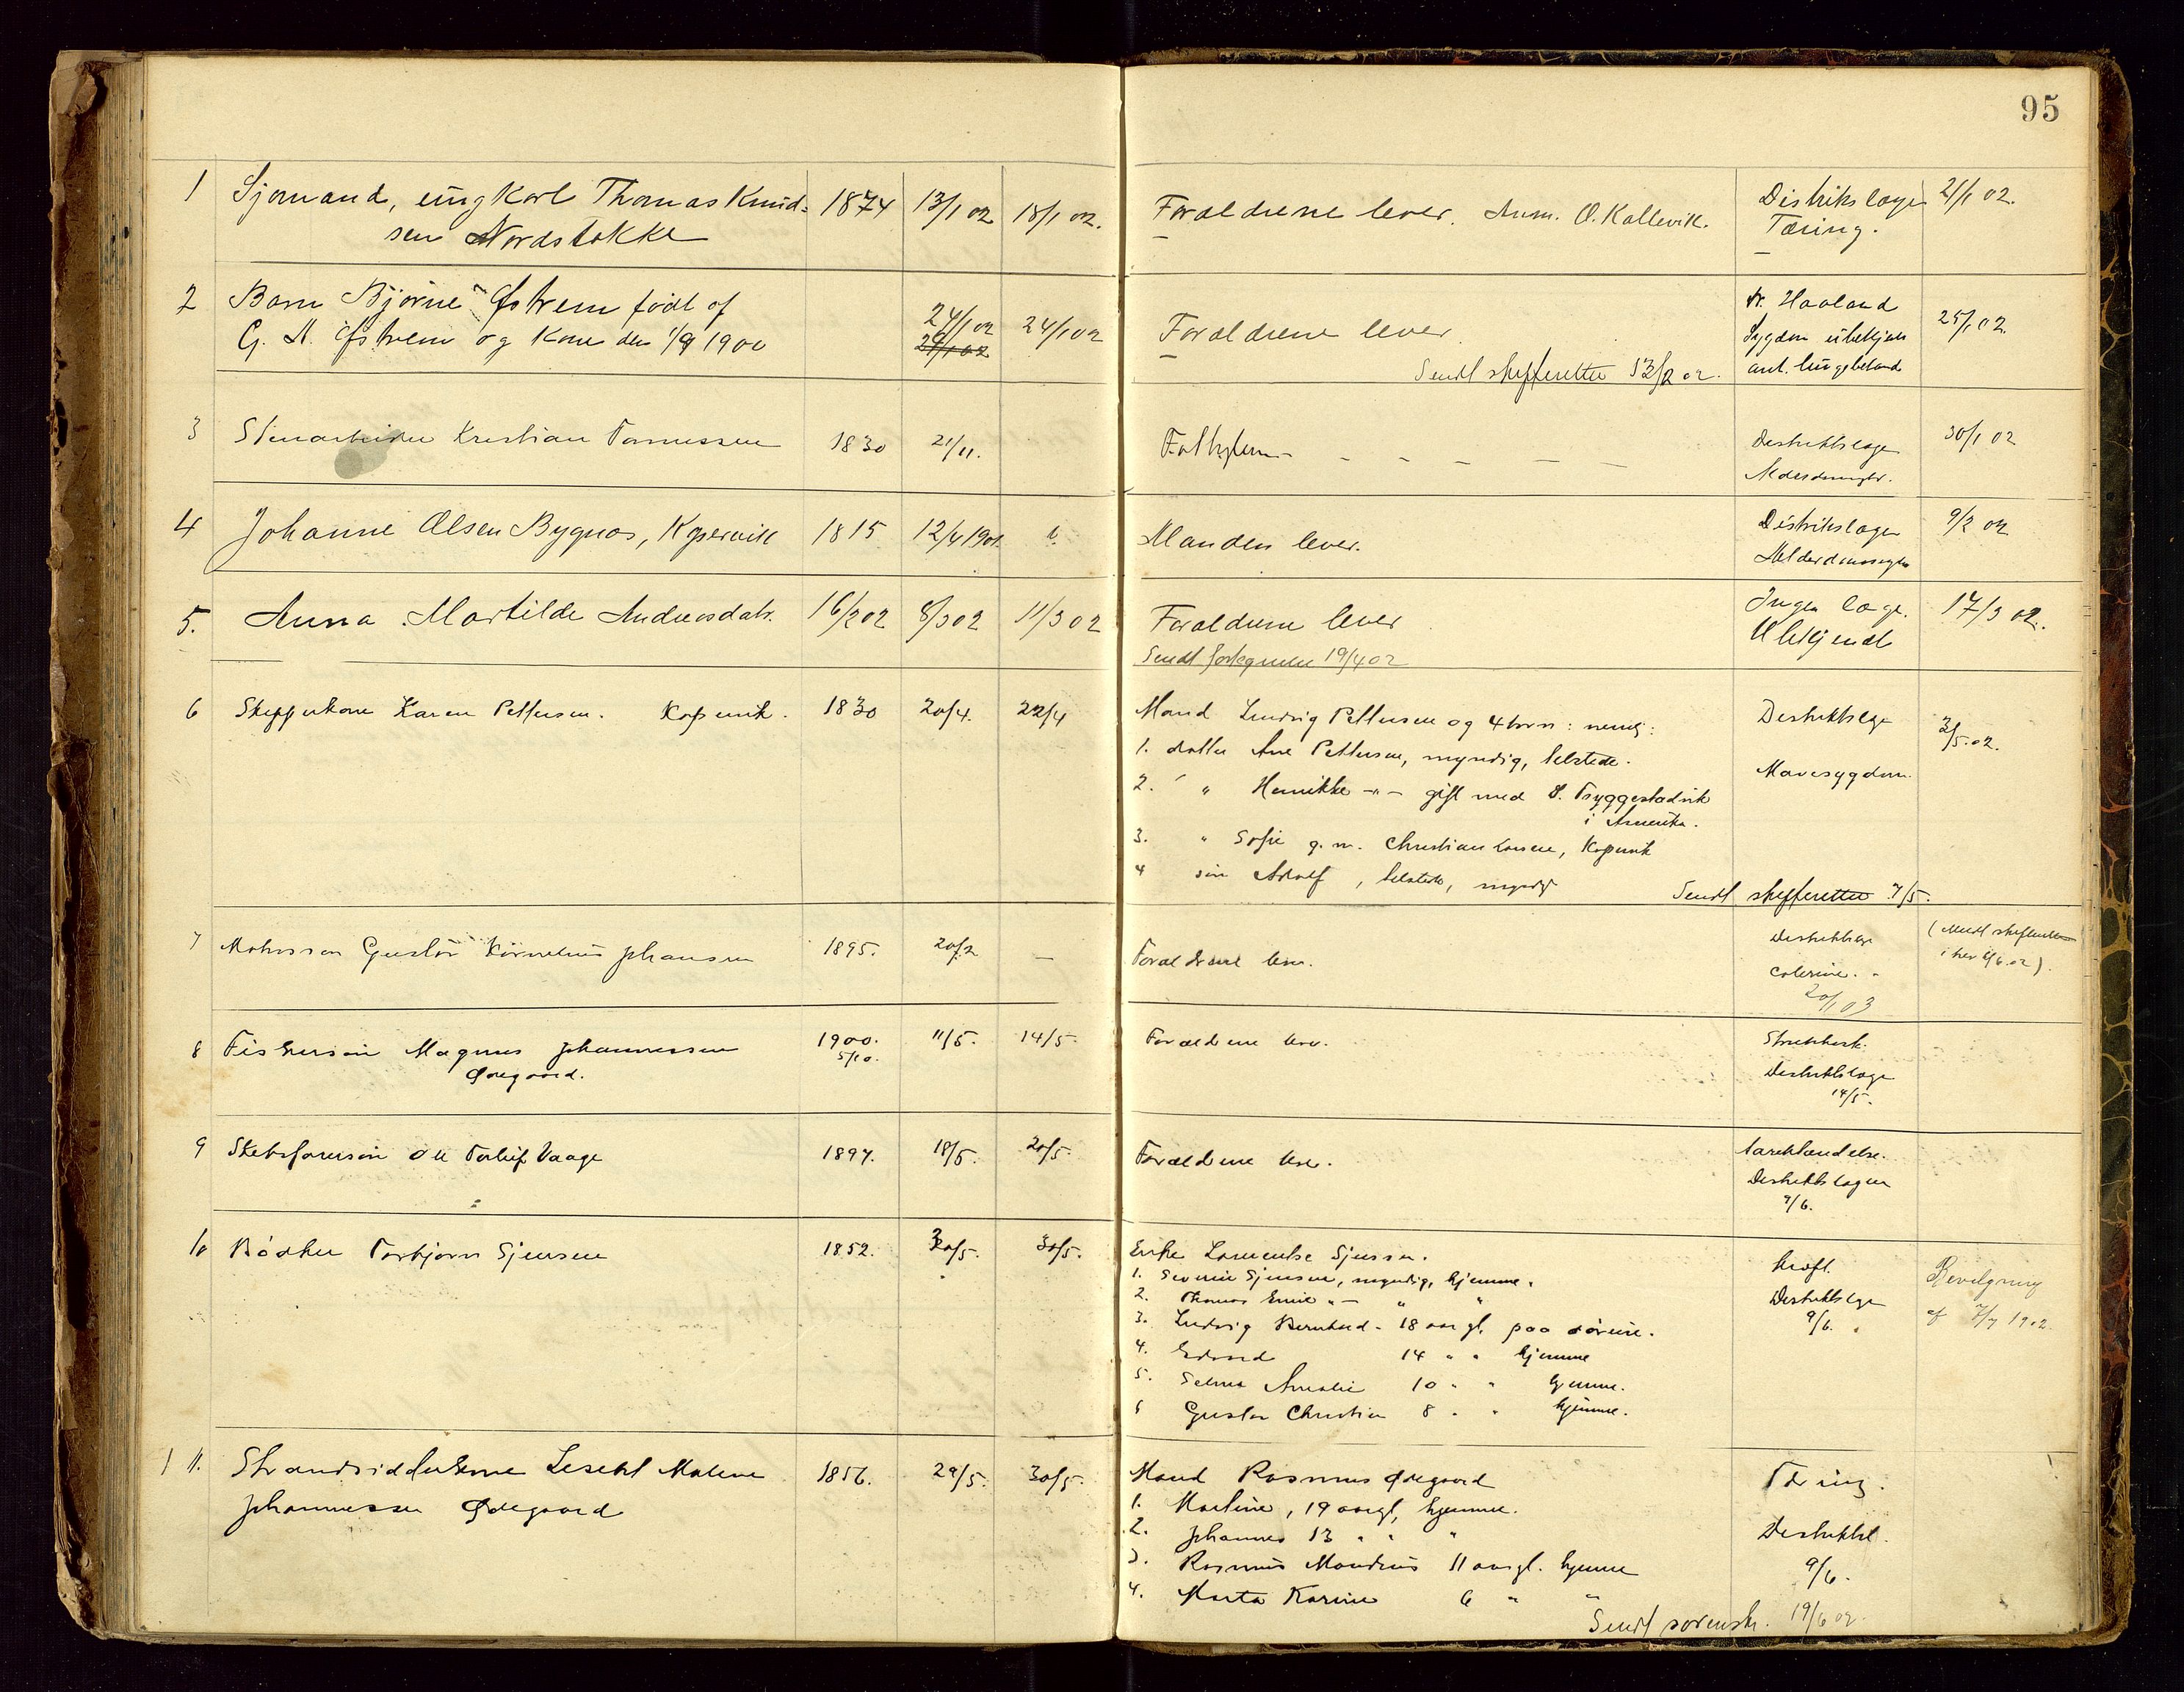 95
1 Sjømand, ungkarl Thomas Knud- 1874 13/1 02 18/1 02. Forældrene lever. Anm. O. Kallevik. Distriktslæge 21/1 02.
sen Nordstokke Tæring.
2 Barn Bjarne Østrem født af 24/1 02 24/1 02 Forældrene lever. dr. Haaland 25/1 02.
G. A. Østrem og Kone den 1/9 1900 Sygdom ubekjent
Sendt skifteretten 13/2 02. ant. lungebetænd
3 Stenarbeider Kristian Rasmussen 1830 21/11. Fattiglem Distriktslæge 30/1 02
Alderdomssv.
4 Johanne Olsen Bygnæs, Kopervik 1815 12/4 1901. Manden lever. Distriktslæge 9/2 02
Alderdomssvag
5. Anna Martilde Andreasdatr. 16/2 02 8/3 02 11/3 02 Forældrene lever Ingen læge. 17/3 02.
Ubekjendt
Sendt fortegnelse 19/4 02
6 Skipperkone Karen Pettersen. Kopervik. 1830 20/4. 22/4 Mand Ludvig Pettersen og 4 børn: nemlig: Distriktslæge 2/5.02.
1. datter Ane Pettersen, myndig, tilstede.
2. " Henrikke -"- gift med S. Tryggestadvik Mavesygdom.
i Amerika.
3. " Sofie g. m. Christian Larsen, Kopervik
4 søn Adolf, tilstede, myndig
Sendt skifteretten 7/5.
7 Matrossøn Gustav Kornelius Johansen 1895. 20/2 — Forældrene lever. Distriktslæge (Meldt skifteretten
colerine. i brev 4/6.02).
20/1 03
8 Fiskersøn Magnus Johannessen 1900. 11/5. 14/5. Forældrene lever. Strubehoste.
Ødegaard. 5/10. Distriktslæge
14/5.
9 Skibsførersøn Ole Torleif Vaage 1897. 18/5. 20/5. Forældrene lever. Distriktslægen
9/6.
10 Bødker Torbjørn Sjursen 1852. 30/5. Enke Laurentse Sjursen. kræft.
1. Severin Sjursen, myndig, hjemme. Bevilgning
2. Thomas Emil " — " " Distriktslæge af 7/7 1902.
3. Ludvig Bernhard - 18 aar gl. paa 9/6.
4. Edvard 14 " " hjemme
5. Selma Amalie 10 " " hjemme.
6 Gustav Christian 8 " " hjemme.
11. Strandsidderkone Lisebet Malene 1856. 29/5. 30/5. Mand Rasmus Ødegaard Tæring.
Johannessen Ødegaard 1. Martine, 19 aargl, hjemme.
2. Johannes 13 " " " Distriktsl.
3. Rasmus Mandrus 11 aargl. hjemme 9/6.
4. Marta Karine 6 " "
Sendt sorenskr. 19/6 02.